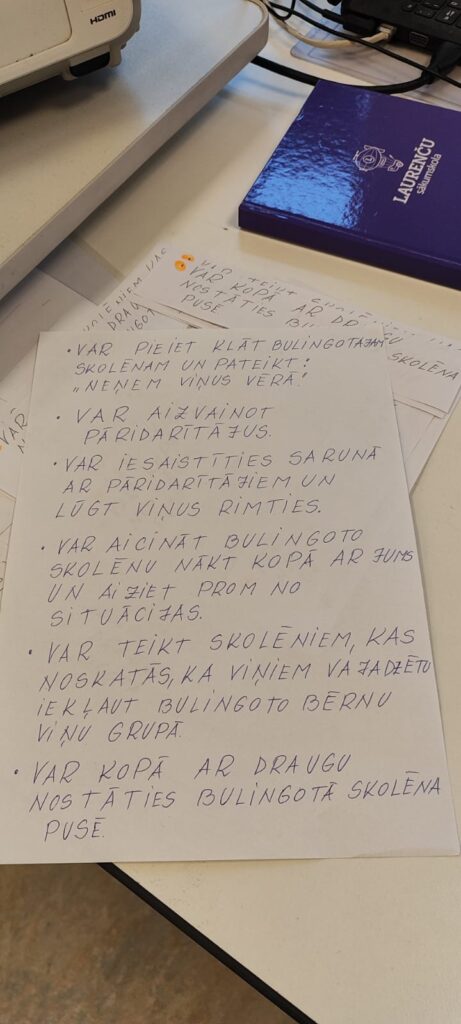 HDMI
LAURENČU
sākumskola
VAR KOPĀ AR DR
NOSTĀTIES BU
SKOLĒNA
PUSĒ
DRAU
• VAR PIEIET KLĀT BULINGOTAJAM
SKOLĒNAM UN PATEIKT:
"NEŅEM VIŅUS VĒRĀ."
• VAR AIZVAINOT
PĀRIDARĪTĀJUS.
• VAR IESAISTĪTIES SARUNĀ
AR PĀRIDARĪTĀJIEM UN
LŪGT VIŅUS RIMTIES.
• VAR AICINĀT BULINGOTO
SKOLĒNU NĀKT KOPĀ AR JUMS
UN AIZIET PROM NO
SITUĀCIJAS.
• VAR TEIKT SKOLĒNIEM, KAS
NOSKATĀS, KA VIŅIEM VAJADZĒTU
IEKĻAUT BULINGOTO BĒRNU
VIŅU GRUPĀ.
• VAR KOPĀ AR DRAUGU
NOSTĀTIES BULINGOTĀ SKOLĒNA
PUSĒ.